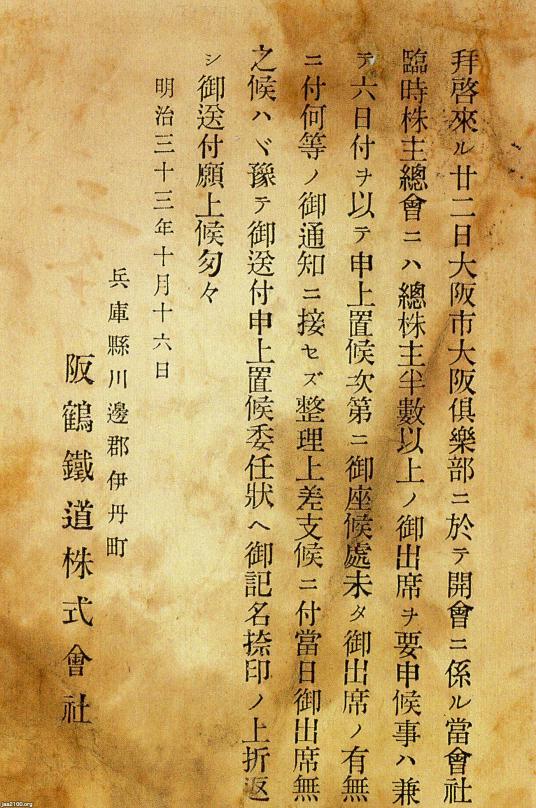 拜啓來ル廿二日大阪市大阪俱樂部ニ於テ開會ニ係ル當會社
臨時株主總會ニハ總株主半數以上ノ御出席ヲ要申候事ハ兼
テ六日付ヲ以テ申上置候次第ニ御座候處未タ御出席ノ有無
ニ付何等ノ御通知ニ接セズ整理上差支候ニ付當日御出席無
之候ハヾ豫テ御送付申上置候委任狀ヘ御記名捺印ノ上折返
シ御送付願上候匇々
明治三十三年十月十六日
兵庫縣川邊郡伊丹町
阪鶴鐵道株式會社
jaa2100.org